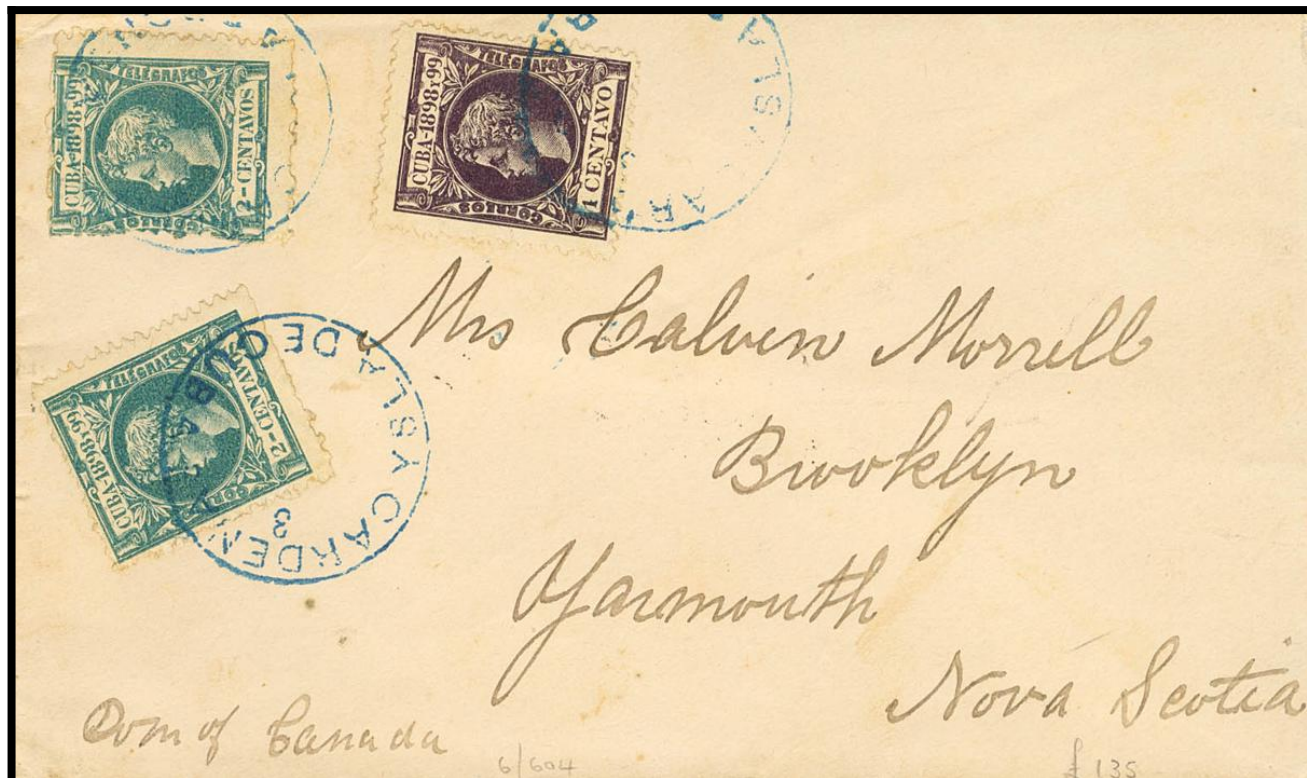 TELEGRAFOS
CUBA-1898 Y 99
2-CENTAVOS
CORREOS
TELEGRAFOS
CUBA-1898 Y 99
1 CENTAVO
CORREOS
TELEGRAFOS
CUBA-1898-99
2-CENTAVOS
ISLA DE CUBA
CARDENAS
3
Mrs Calvin Morrell
Brooklyn
Yarmouth
Nova Scotia
Dom of Canada
6/604
£135